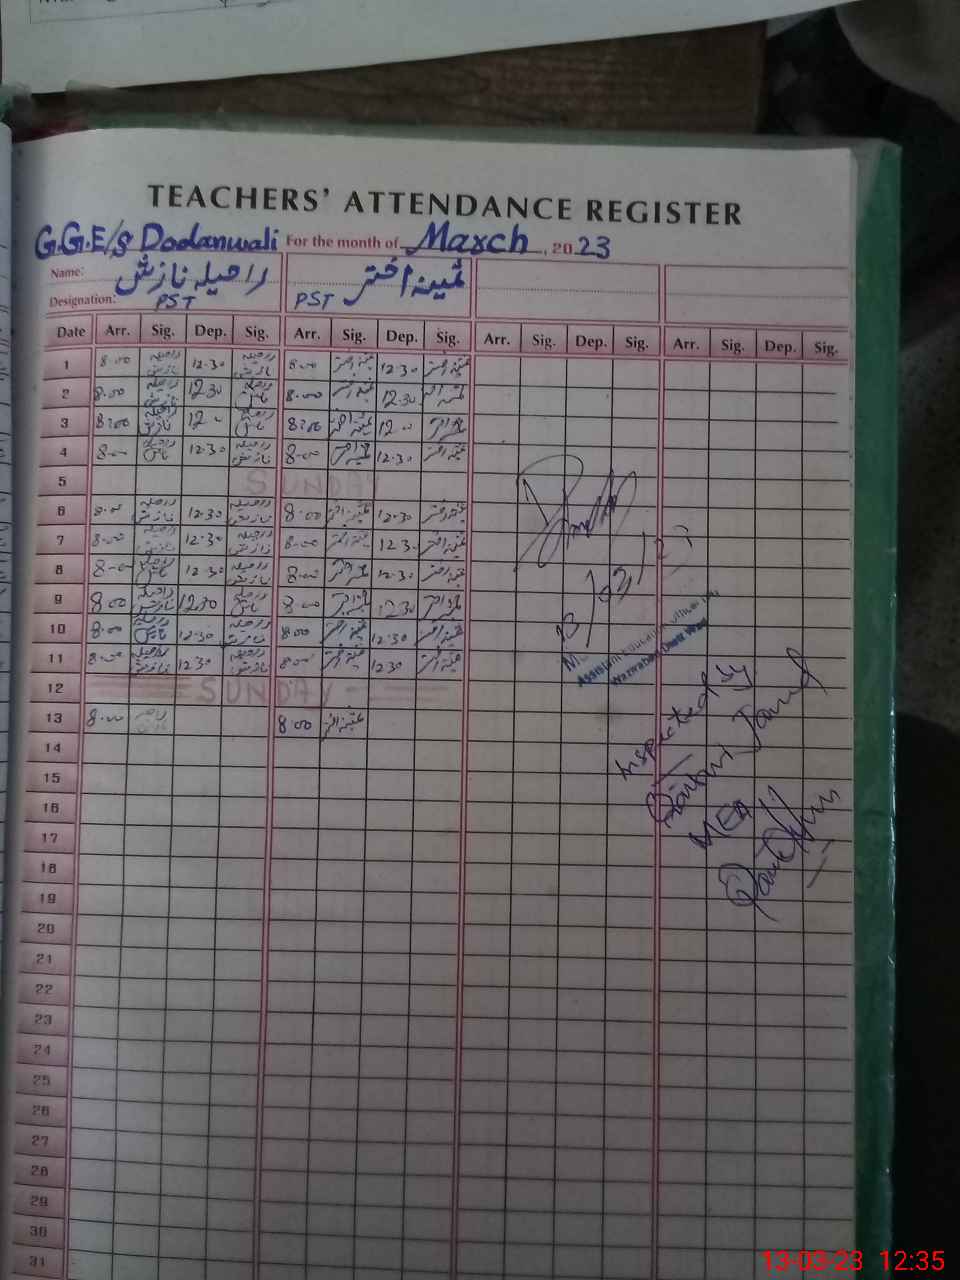 TEACHERS' ATTENDANCE REGISTER
G.G.E/S Dodanwali For the month of March, 2023
Name: راحیلہ نازش ثمینہ اختر
Designation: PST PST
Date Arr. Sig. Dep. Sig. Arr. Sig. Dep. Sig. Arr. Sig. Dep. Sig. Arr. Sig. Dep. Sig.
1 8:00 راحیلہ نازش 12:30 راحیلہ نازش 8:00 ثمینہ اختر 12:30 ثمینہ اختر
2 8:00 راحیلہ نازش 12:30 راحیلہ نازش 8:00 ثمینہ اختر 12:30 ثمینہ اختر
3 8:00 راحیلہ نازش 12:00 راحیلہ نازش 8:00 ثمینہ اختر 12:00 ثمینہ اختر
4 8:00 راحیلہ نازش 12:30 راحیلہ نازش 8:00 ثمینہ اختر 12:30 ثمینہ اختر
5 SUNDAY
6 8:00 راحیلہ نازش 12:30 راحیلہ نازش 8:00 ثمینہ اختر 12:30 ثمینہ اختر
7 8:00 راحیلہ نازش 12:30 راحیلہ نازش 8:00 ثمینہ اختر 12:30 ثمینہ اختر
8 8:00 راحیلہ نازش 12:30 راحیلہ نازش 8:00 ثمینہ اختر 12:30 ثمینہ اختر
9 8:00 راحیلہ نازش 12:30 راحیلہ نازش 8:00 ثمینہ اختر 12:30 ثمینہ اختر
10 8:00 راحیلہ نازش 12:30 راحیلہ نازش 8:00 ثمینہ اختر 12:30 ثمینہ اختر
11 8:00 راحیلہ نازش 12:30 راحیلہ نازش 8:00 ثمینہ اختر 12:30 ثمینہ اختر
12 SUNDAY
13 8:00 راحیلہ نازش 8:00 ثمینہ اختر
14
15
16
17
18
19
20
21
22
23
24
25
26
27
28
29
30
31
Assistant Education Officer
Inspected by
Jamil
MEA
13-03-23 12:35